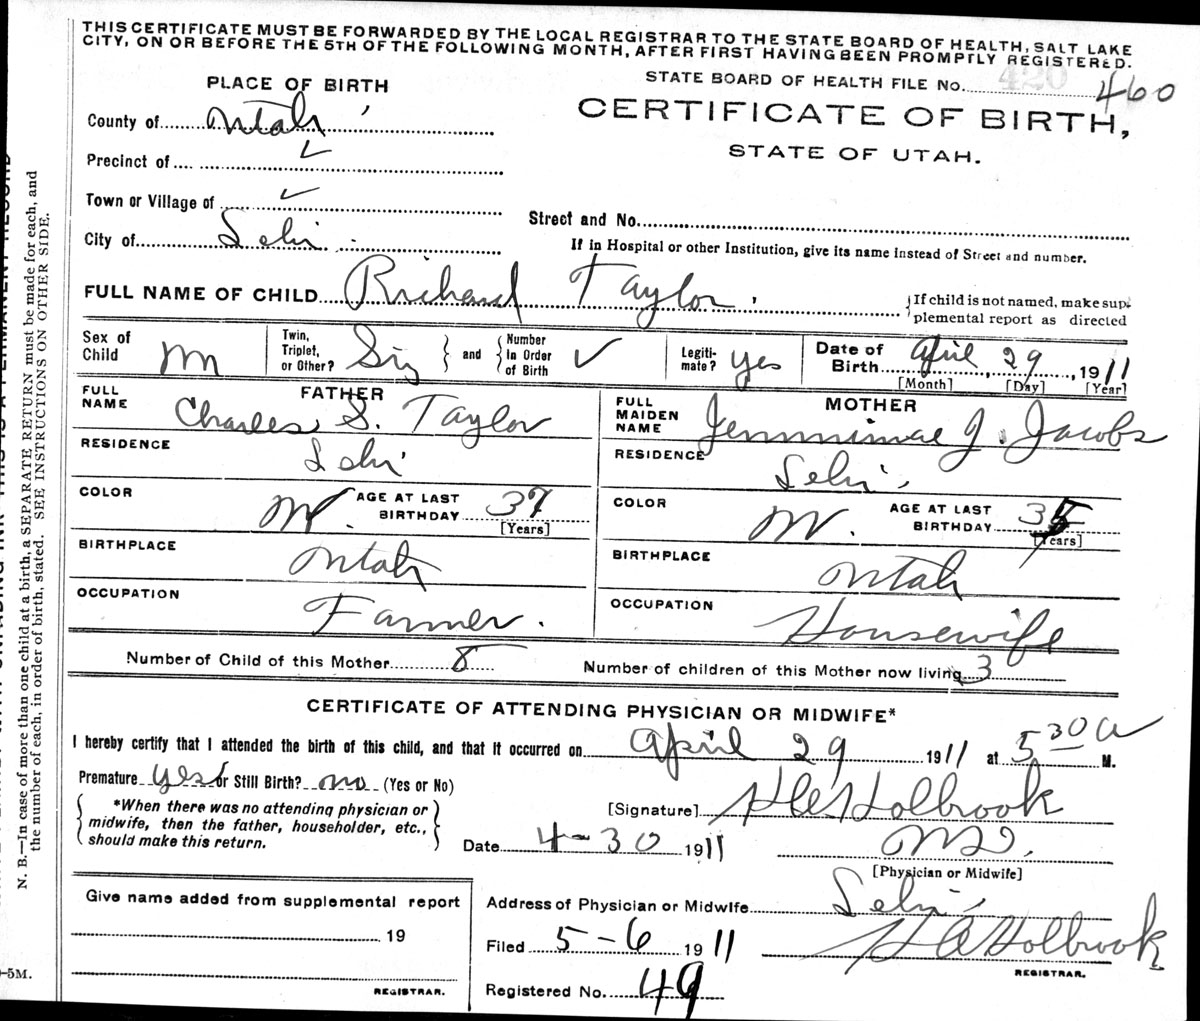 THIS CERTIFICATE MUST BE FORWARDED BY THE LOCAL REGISTRAR TO THE STATE BOARD OF HEALTH, SALT LAKE
CITY, ON OR BEFORE THE 5TH OF THE FOLLOWING MONTH, AFTER FIRST HAVING BEEN PROMPTLY REGISTERED.
PLACE OF BIRTH
STATE BOARD OF HEALTH FILE No. 420 460
CERTIFICATE OF BIRTH,
STATE OF UTAH.
County of Utah
Precinct of ✓
Town or Village of ✓
Street and No.
City of Lehi
If in Hospital or other Institution, give its name instead of Street and number.
FULL NAME OF CHILD Richard Taylor
{If child is not named, make sup-
plemental report as directed
Sex of Child M
Twin, Triplet, or Other? Sing
and
Number In Order of Birth ✓
Legiti-mate? yes
Date of Birth April, 29, 1911
[Month] [Day] [Year]
FATHER
FULL NAME Charles S. Taylor
RESIDENCE Lehi
COLOR W.
AGE AT LAST BIRTHDAY 37
[Years]
BIRTHPLACE Utah
OCCUPATION Farmer.
MOTHER
FULL MAIDEN NAME Jemmimae J. Jacobs
RESIDENCE Lehi
COLOR W.
AGE AT LAST BIRTHDAY 35
[Years]
BIRTHPLACE Utah
OCCUPATION Housewife
Number of Child of this Mother
Number of children of this Mother now living 3
CERTIFICATE OF ATTENDING PHYSICIAN OR MIDWIFE*
I hereby certify that I attended the birth of this child, and that it occurred on April 29 1911 at 5 30 A M.
Premature yes or Still Birth? no (Yes or No)
*When there was no attending physician or
midwife, then the father, householder, etc.,
should make this return.
[Signature] Holbrook
Date 4-30 1911
MD.
[Physician or Midwife]
Give name added from supplemental report
19
REGISTRAR.
Address of Physician or Midwife Lehi
Filed 5-6 1911
Holbrook
REGISTRAR.
Registered No. 49
N. B.—In case of more than one child at a birth, a SEPARATE RETURN must be made for each, and
the number of each, in order of birth, stated. SEE INSTRUCTIONS ON OTHER SIDE.
-5M.